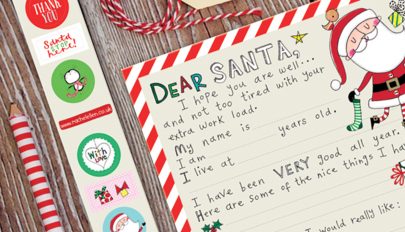 THANK
YOU
Santa
STOP
here!
www.rachelellen.co.uk
With
Love
DEAR SANTA,
I hope you are well...
and not too tired with your
extra work load.
My name is
I am years old.
I live at
I have been VERY good all year.
Here are some of the nice things I have
I would really like: